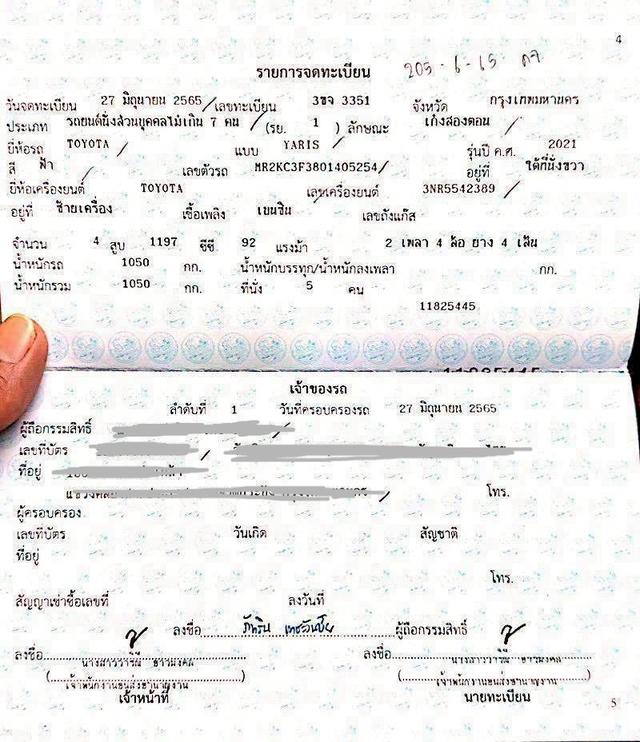 4
รายการจดทะเบียน
วันจดทะเบียน 27 มิถุนายน 2565 เลขทะเบียน 3ขจ 3351 จังหวัด กรุงเทพมหานคร
ประเภท รถยนต์นั่งส่วนบุคคลไม่เกิน 7 คน (รย. 1 ) ลักษณะ เก๋งสองตอน
ยี่ห้อรถ TOYOTA แบบ YARIS รุ่นปี ค.ศ. 2021
สี ฟ้า เลขตัวรถ MR2KC3F3801405254 อยู่ที่ ใต้ที่นั่งขวา
ยี่ห้อเครื่องยนต์ TOYOTA เลขเครื่องยนต์ 3NR5542389
อยู่ที่ ซ้ายเครื่อง เชื้อเพลิง เบนซิน เลขถังแก๊ส
จำนวน 4 สูบ 1197 ซีซี 92 แรงม้า 2 เพลา 4 ล้อ ยาง 4 เส้น
น้ำหนักรถ 1050 กก. น้ำหนักบรรทุก/น้ำหนักลงเพลา กก.
น้ำหนักรวม 1050 กก. ที่นั่ง 5 คน
11825445
เจ้าของรถ
ลำดับที่ 1 วันที่ครอบครองรถ 27 มิถุนายน 2565
ผู้ถือกรรมสิทธิ์
เลขที่บัตร
ที่อยู่
โทร.
ผู้ครอบครอง
เลขที่บัตร วันเกิด สัญชาติ
ที่อยู่
โทร.
สัญญาเช่าซื้อเลขที่ ลงวันที่
ลงชื่อ ผู้ถือกรรมสิทธิ์
ลงชื่อ ลงชื่อ
(เจ้าพนักงานขนส่งชำนาญงาน) (เจ้าพนักงานขนส่งชำนาญงาน)
เจ้าหน้าที่ นายทะเบียน
5